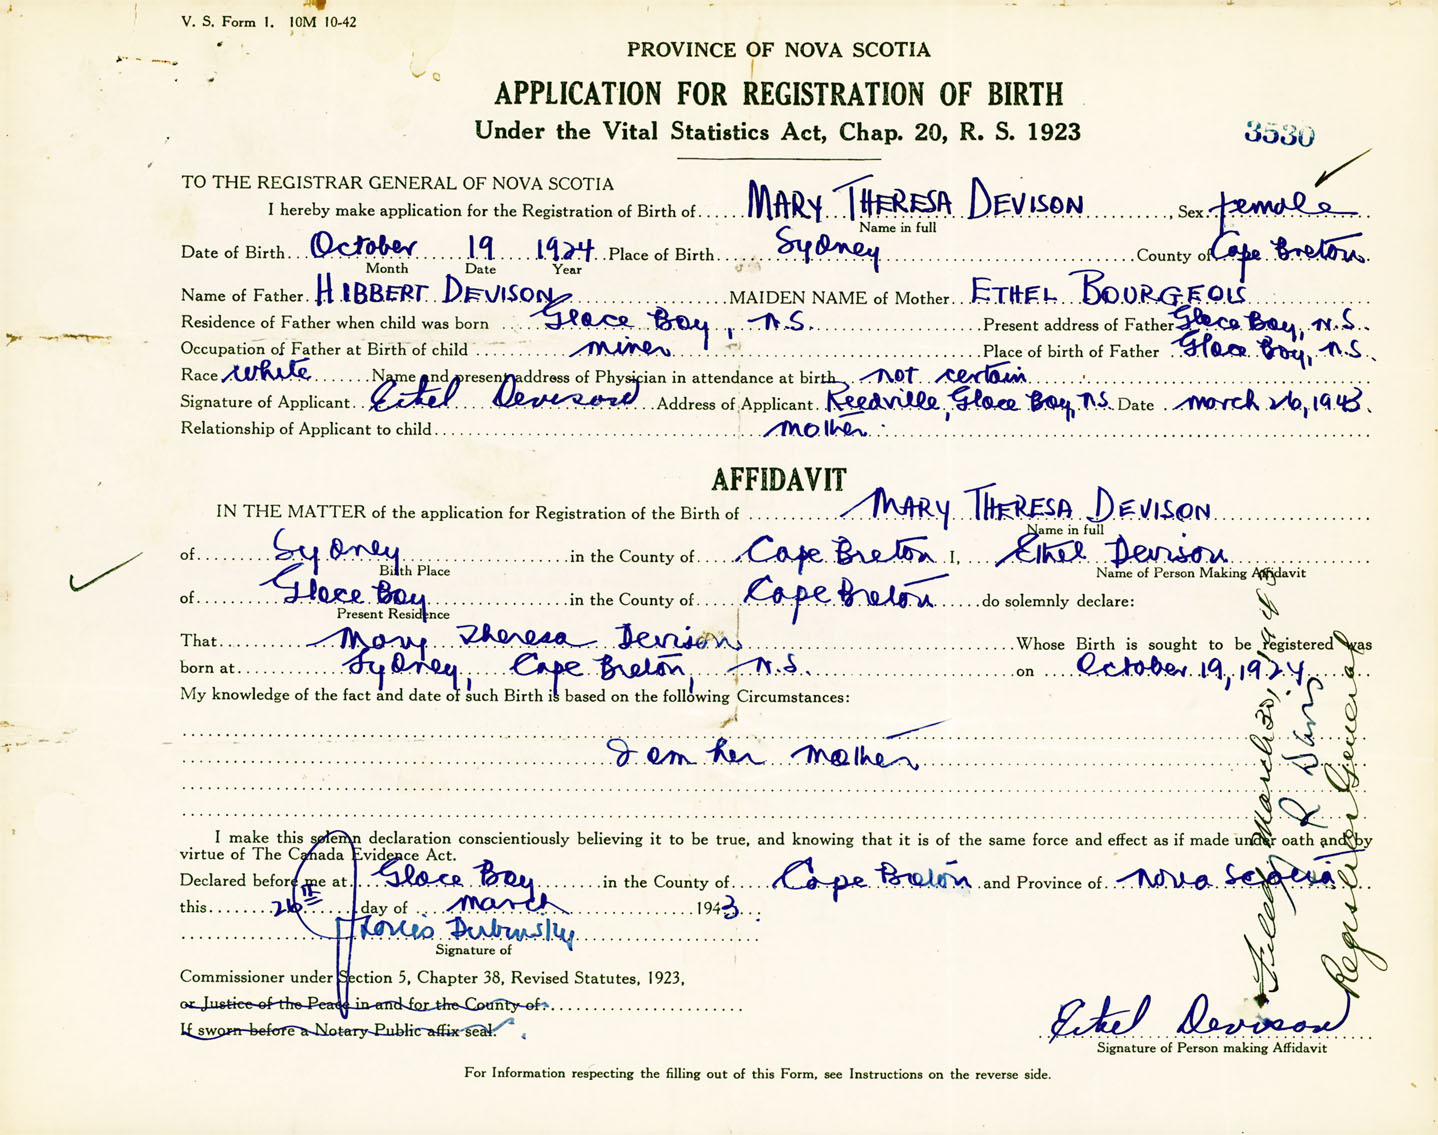 V. S. Form 1. 10M 10-42
PROVINCE OF NOVA SCOTIA
APPLICATION FOR REGISTRATION OF BIRTH
Under the Vital Statistics Act, Chap. 20, R. S. 1923
3530
TO THE REGISTRAR GENERAL OF NOVA SCOTIA
I hereby make application for the Registration of Birth of MARY THERESA DEVISON, Sex female
Name in full
Date of Birth October 19 1924 Place of Birth Sydney County of Cape Breton
Month Date Year
Name of Father HIBBERT DEVISON MAIDEN NAME of Mother ETHEL BOURGEOIS
Residence of Father when child was born Glace Bay, N.S. Present address of Father Glace Bay, N.S.
Occupation of Father at Birth of child miner Place of birth of Father Glace Bay, N.S.
Race White Name and present address of Physician in attendance at birth not certain
Signature of Applicant Ethel Devison Address of Applicant Reedville, Glace Bay, N.S. Date March 26, 1943.
Relationship of Applicant to child mother
AFFIDAVIT
IN THE MATTER of the application for Registration of the Birth of MARY THERESA DEVISON
Name in full
of Sydney in the County of Cape Breton I, Ethel Devison
Birth Place Name of Person Making Affidavit
of Glace Bay in the County of Cape Breton do solemnly declare:
Present Residence
That Mary Theresa Devison Whose Birth is sought to be registered was
born at Sydney, Cape Breton, N.S. on October 19, 1924
My knowledge of the fact and date of such Birth is based on the following Circumstances:
I am her mother
I make this solemn declaration conscientiously believing it to be true, and knowing that it is of the same force and effect as if made under oath and by
virtue of The Canada Evidence Act.
Declared before me at Glace Bay in the County of Cape Breton and Province of Nova Scotia
this 26th day of March 1943.
Louis Dubinsky
Signature of
Commissioner under Section 5, Chapter 38, Revised Statutes, 1923,
or Justice of the Peace in and for the County of
If sworn before a Notary Public affix seal.
Ethel Devison
Signature of Person making Affidavit
For Information respecting the filling out of this Form, see Instructions on the reverse side.
Filed March 30, 1943
R Davis
Registrar General